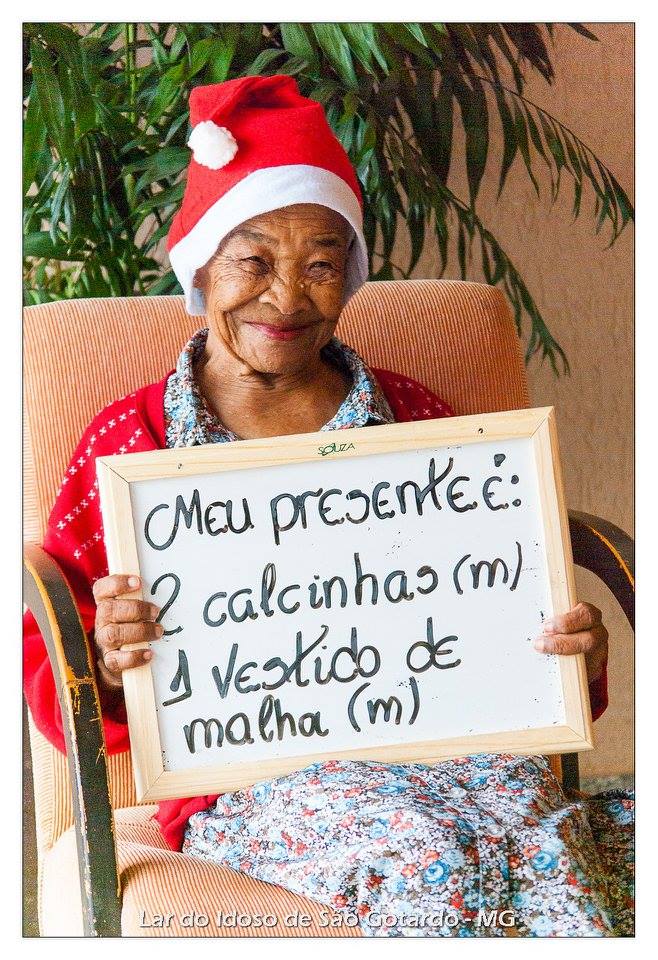 SOUZA
Meu presente é:
2 calcinhas (m)
1 vestido de
malha (m)
Lar do Idoso de São Gotardo - MG